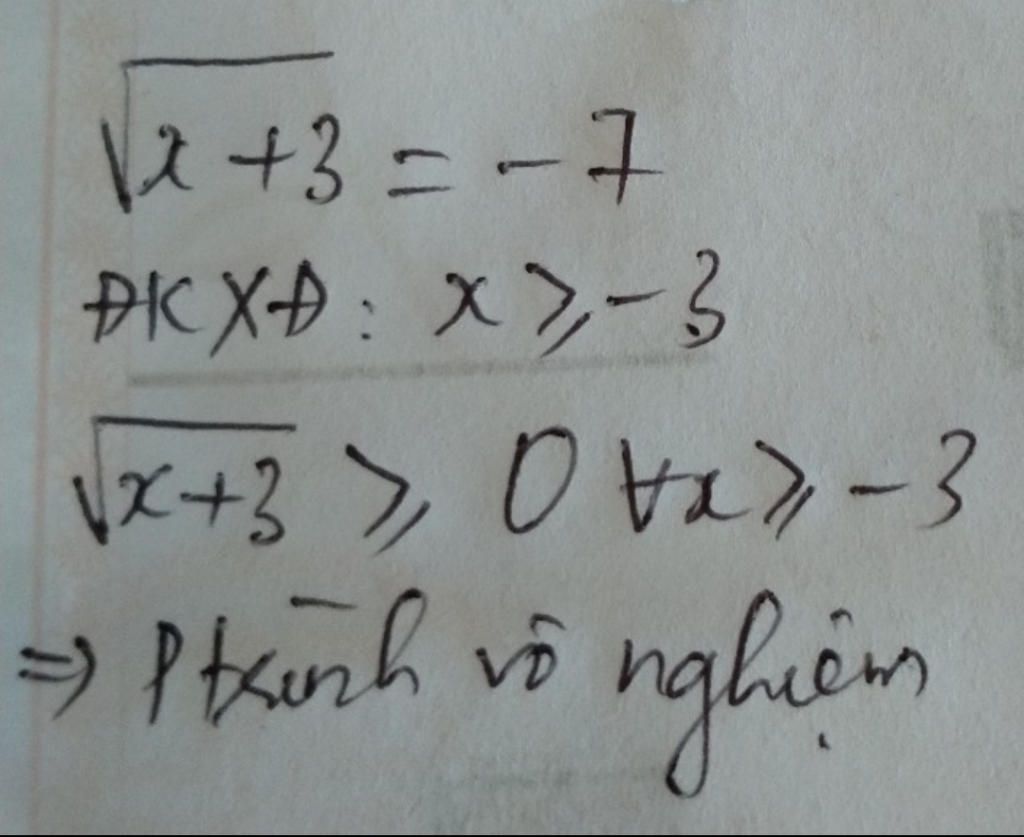 √x+3 = -7
ĐKXĐ: x ⩾ -3
√x+3 ⩾ 0 ∀x ⩾ -3
=> Ptrình vô nghiệm